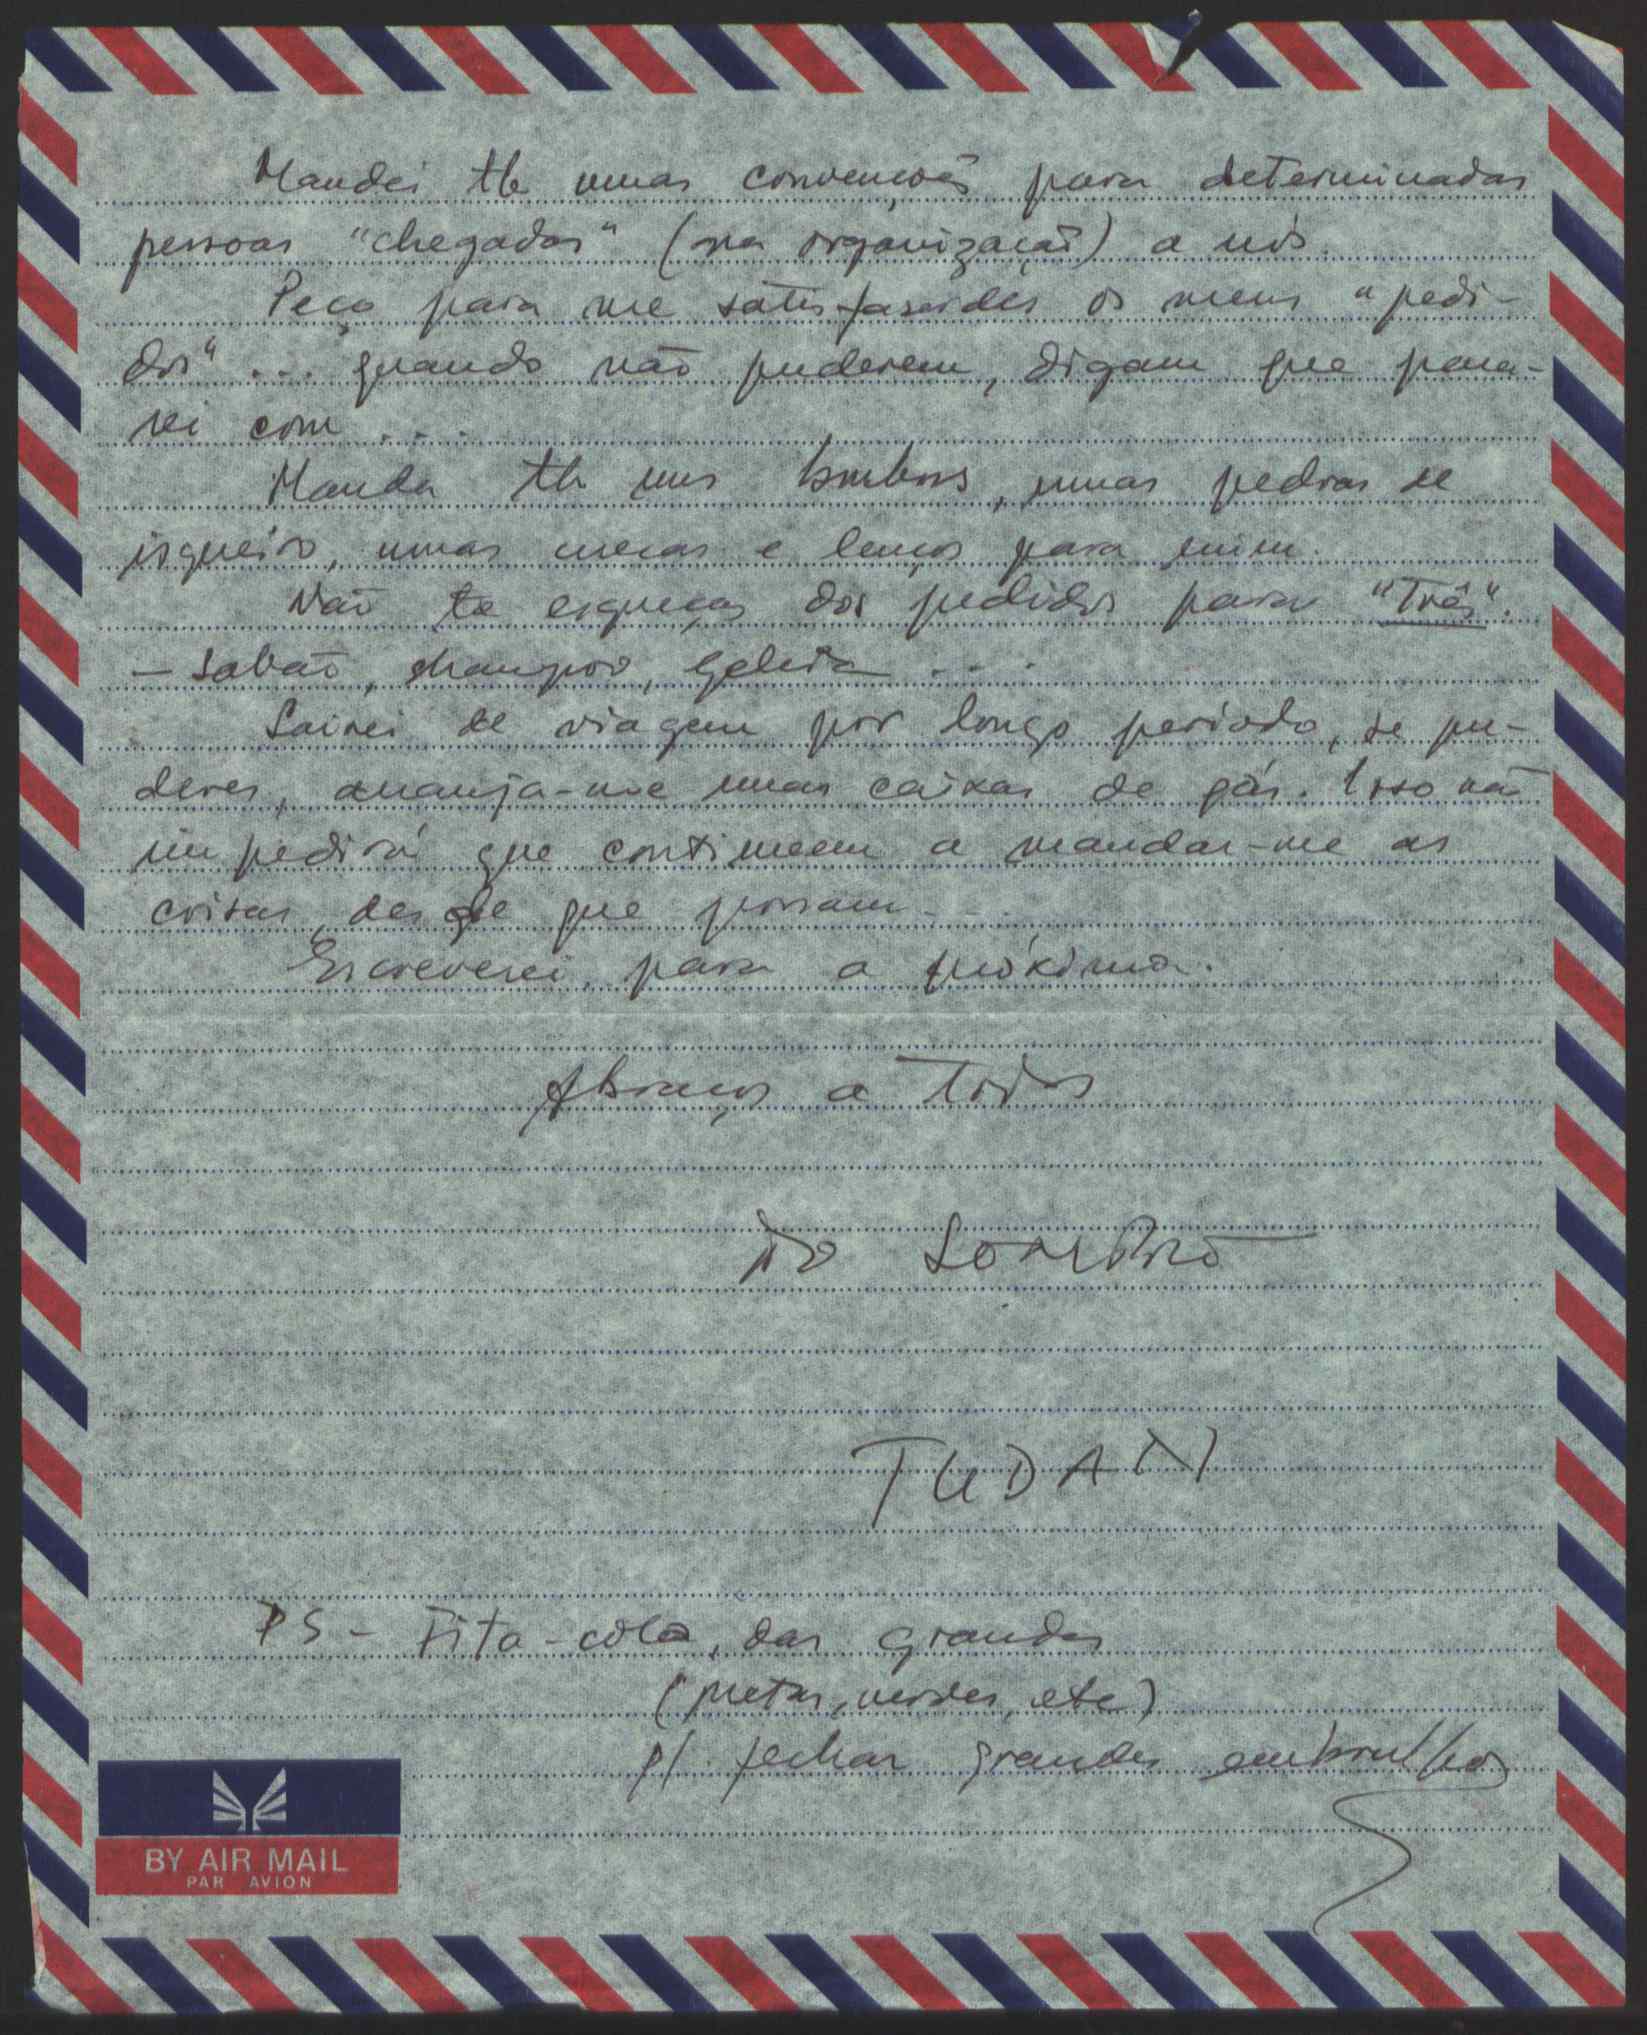 Mandei tb umas convenções para determinadas
pessoas "chegadas" (na organização) a nós.
Peço para me satisfazerdes os meus "pedi-
dos" ... quando não puderem, digam que para-
rei com ...
Manda tb uns bombons, umas pedras de
isqueiro, umas cuecas e lenços para mim.
Não te esqueças dos pedidos para "Três".
- Sabão, champoo, geleia ...
Sairei de viagem por longo período, se pu-
deres, arranja-me umas caixas de gás. Isso não
impedirá que continuem a mandar-me as
coisas, desde que possam ...
Escreverei para a próxima.
Abraços a todos
Do
TUDAN
PS - Fita-cola, das grandes
(pretas, verdes, etc)
p/ fechar grandes embrulhos
BY AIR MAIL
PAR AVION